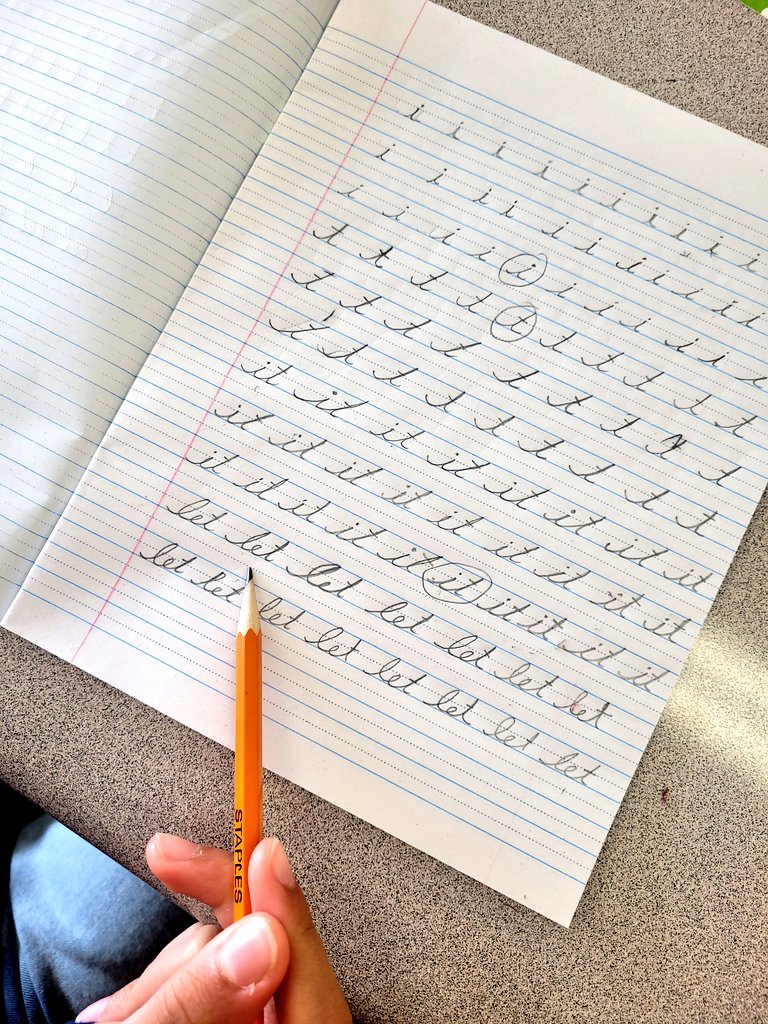 i i i i i i i i i i
i i i i i i i i i i i
i i i i i i i i i i i
t t t t t t t t t t
t t t t t t t t t
t t t t t t t t t
it it it it it it it it
it it it it it it it it it
it it it it it it it it it it
let let let let let let let
let let let let let let let let
STAPLES